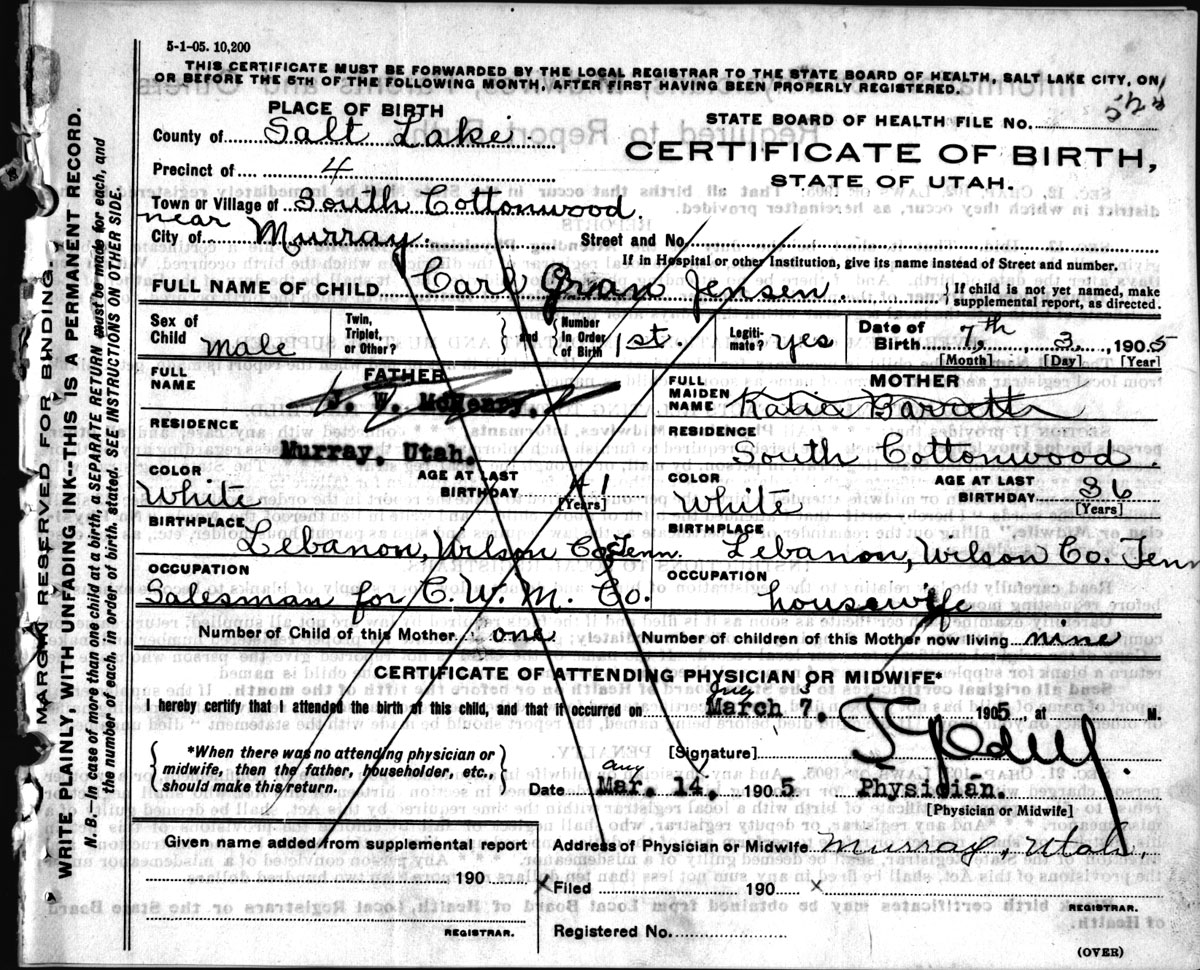 5-1-05. 10,200
THIS CERTIFICATE MUST BE FORWARDED BY THE LOCAL REGISTRAR TO THE STATE BOARD OF HEALTH, SALT LAKE CITY, ON
OR BEFORE THE 5TH OF THE FOLLOWING MONTH, AFTER FIRST HAVING BEEN PROPERLY REGISTERED.
PLACE OF BIRTH
County of Salt Lake
STATE BOARD OF HEALTH FILE No.
CERTIFICATE OF BIRTH,
STATE OF UTAH.
Precinct of 4
Town or Village of South Cottonwood.
near
City of Murray
Street and No.
If in Hospital or other Institution, give its name instead of Street and number.
FULL NAME OF CHILD Carl Gran Jensen
{ If child is not yet named, make
supplemental report, as directed.
Sex of Child Male
Twin, Triplet, or Other?
and
Number in Order of Birth 1st.
Legitimate? yes
Date of Birth 7th 3 1905
[Month] [Day] [Year]
FATHER
FULL NAME J. W. McHenry.
RESIDENCE
Murray, Utah.
COLOR White
AGE AT LAST BIRTHDAY 41
[Years]
BIRTHPLACE
Lebanon, Wilson Co. Tenn.
OCCUPATION
Salesman for C. W. M. Co.
MOTHER
FULL MAIDEN NAME Katie Barrett
RESIDENCE
South Cottonwood.
COLOR White
AGE AT LAST BIRTHDAY 36
[Years]
BIRTHPLACE
Lebanon, Wilson Co. Tenn
OCCUPATION
housewife
Number of Child of this Mother one
Number of children of this Mother now living nine
CERTIFICATE OF ATTENDING PHYSICIAN OR MIDWIFE*
I hereby certify that I attended the birth of this child, and that it occurred on March 7. 1905, at M.
{ *When there was no attending physician or
midwife, then the father, householder, etc.,
should make this return. }
[Signature]
Aug
Date Mar. 14, 1905
Physician.
[Physician or Midwife]
Given name added from supplemental report
190
REGISTRAR.
Address of Physician or Midwife Murray, Utah.
Filed 190
REGISTRAR.
Registered No.
(OVER)
MARGIN RESERVED FOR BINDING.
WRITE PLAINLY, WITH UNFADING INK--THIS IS A PERMANENT RECORD.
N. B.—In case of more than one child at a birth, a SEPARATE RETURN must be made for each, and
the number of each, in order of birth, stated. SEE INSTRUCTIONS ON OTHER SIDE.